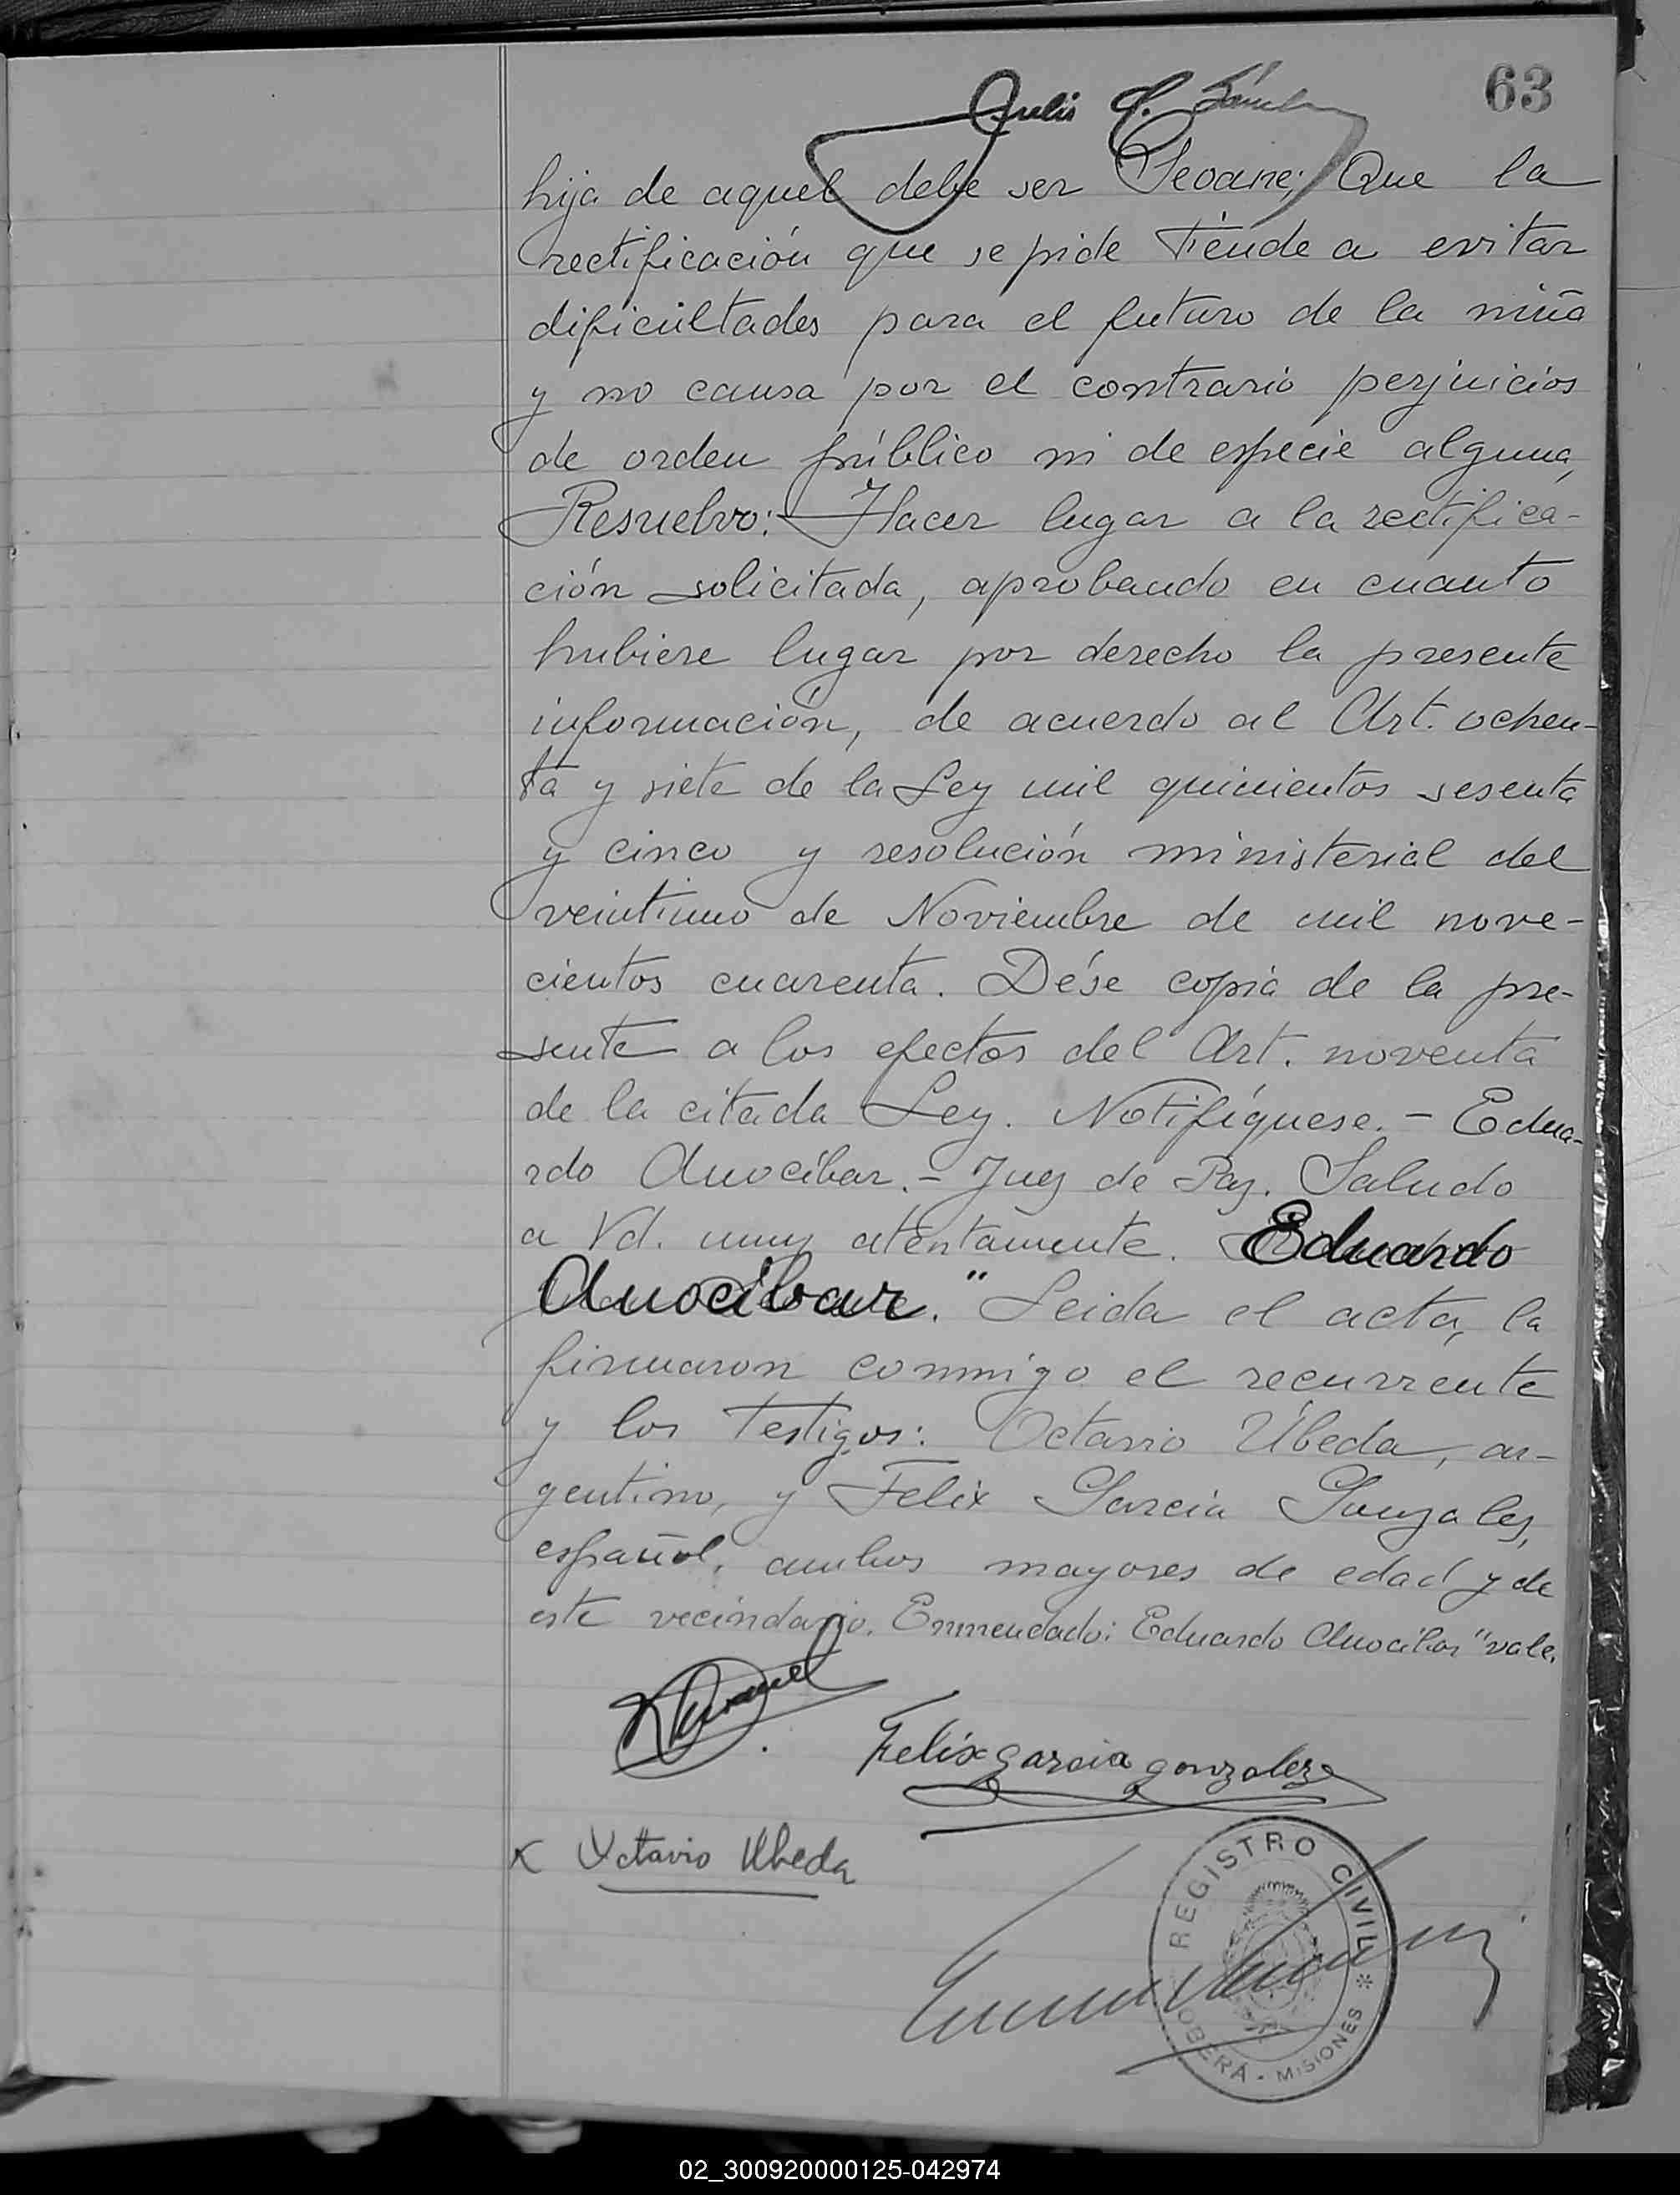 63
hija de aquel debe ser Seoane; Que la
rectificación que se pide tiende a evitar
dificultades para el futuro de la niña
y no causa por el contrario perjuicios
de orden público ni de especie alguna,
Resuelvo: Hacer lugar a la rectifica-
ción solicitada, aprobando en cuanto
hubiere lugar por derecho la presente
información, de acuerdo al Art. ochen-
ta y siete de la Ley mil quinientos sesenta
y cinco y resolución ministerial del
veintiuno de Noviembre de mil nove-
cientos cuarenta. Dése copia de la pre-
sente a los efectos del Art. noventa
de la citada Ley. Notifíquese. - Edua-
rdo Anocíbar. - Juez de Paz. Saludo
a Vd. muy atentamente. Eduardo
Anocíbar." Leida el acta, la
firmaron conmigo el recurrente
y los testigos: Octavio Úbeda, ar-
gentino, y Felix Garcia Gonzales,
español, ambos mayores de edad y de
este vecindario. Enmendado: Eduardo Anocibar "vale.
Felix garcia gonzalez
Octavio Ubeda
REGISTRO CIVIL *
OBERÁ - MISIONES
02_300920000125-042974